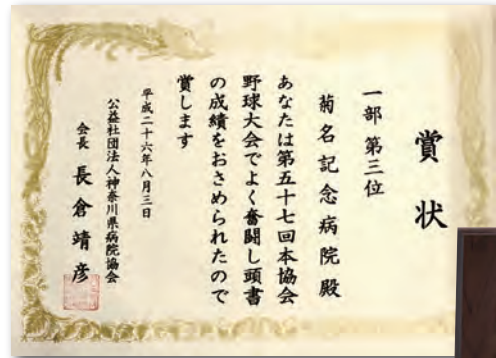 賞状
一部 第三位
菊名記念病院殿
あなたは第五十七回本協会
野球大会でよく奮闘し頭書
の成績をおさめられたので
賞します
平成二十六年八月三日
公益社団法人神奈川県病院協会
会長 長倉靖彦